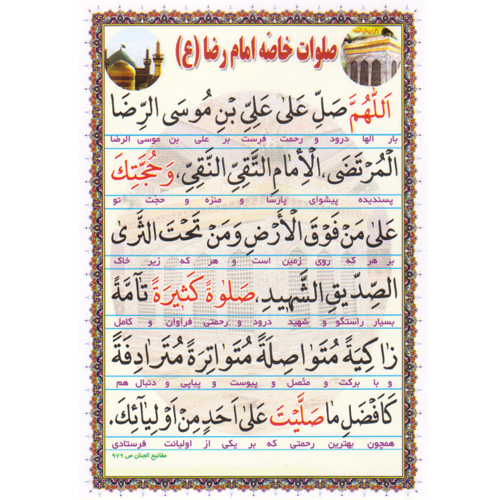 صلوات خاصّه امام رضا (ع)
اَللّهُمَّ صَلِّ عَلی عَلِیِّ بْنِ مُوسَی الرِّضَا
بار الها درود و رحمت فرست بر علی بن موسی الرضا
الْمُرْتَضَی، الْاِمَامِ التَّقِیِّ النَّقِیِّ، وَحُجَّتِكَ
پسندیده پیشوای پارسا و منزه و حجّت تو
عَلی مَنْ فَوْقَ الْأَرْضِ وَمَنْ تَحْتَ الثَّری
بر هر که روی زمین است و هر که زیر خاک
الصِّدِّیقِ الشَّهِیدِ، صَلوةً کَثِیرَةً تآمَّةً
بسیار راستگو و شهید درود و رحمتی فراوان و کامل
زَاکِیَةً مُتَوَاصِلَةً مُتَوَاتِرَةً مُتَرَادِفَةً
و با برکت و متّصل و پیوست و پیاپی و دنبال هم
کَاَفْضَلِ مَا صَلَّیْتَ عَلی اَحَدٍ مِنْ اَوْلِیآئِكَ.
همچون بهترین رحمتی که بر یکی از اولیائت فرستادی
مفاتیح الجنان ص ۹۷۹